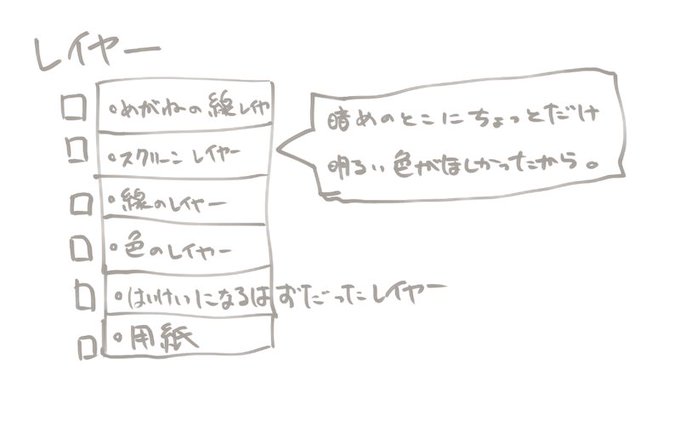 レイヤー
・めがねの線レイヤ
・スクリーン レイヤー
・線のレイヤー
・色のレイヤー
・はいけいになるはずだったレイヤー
・用紙
暗めのとこにちょっとだけ
明るい色がほしかったから。